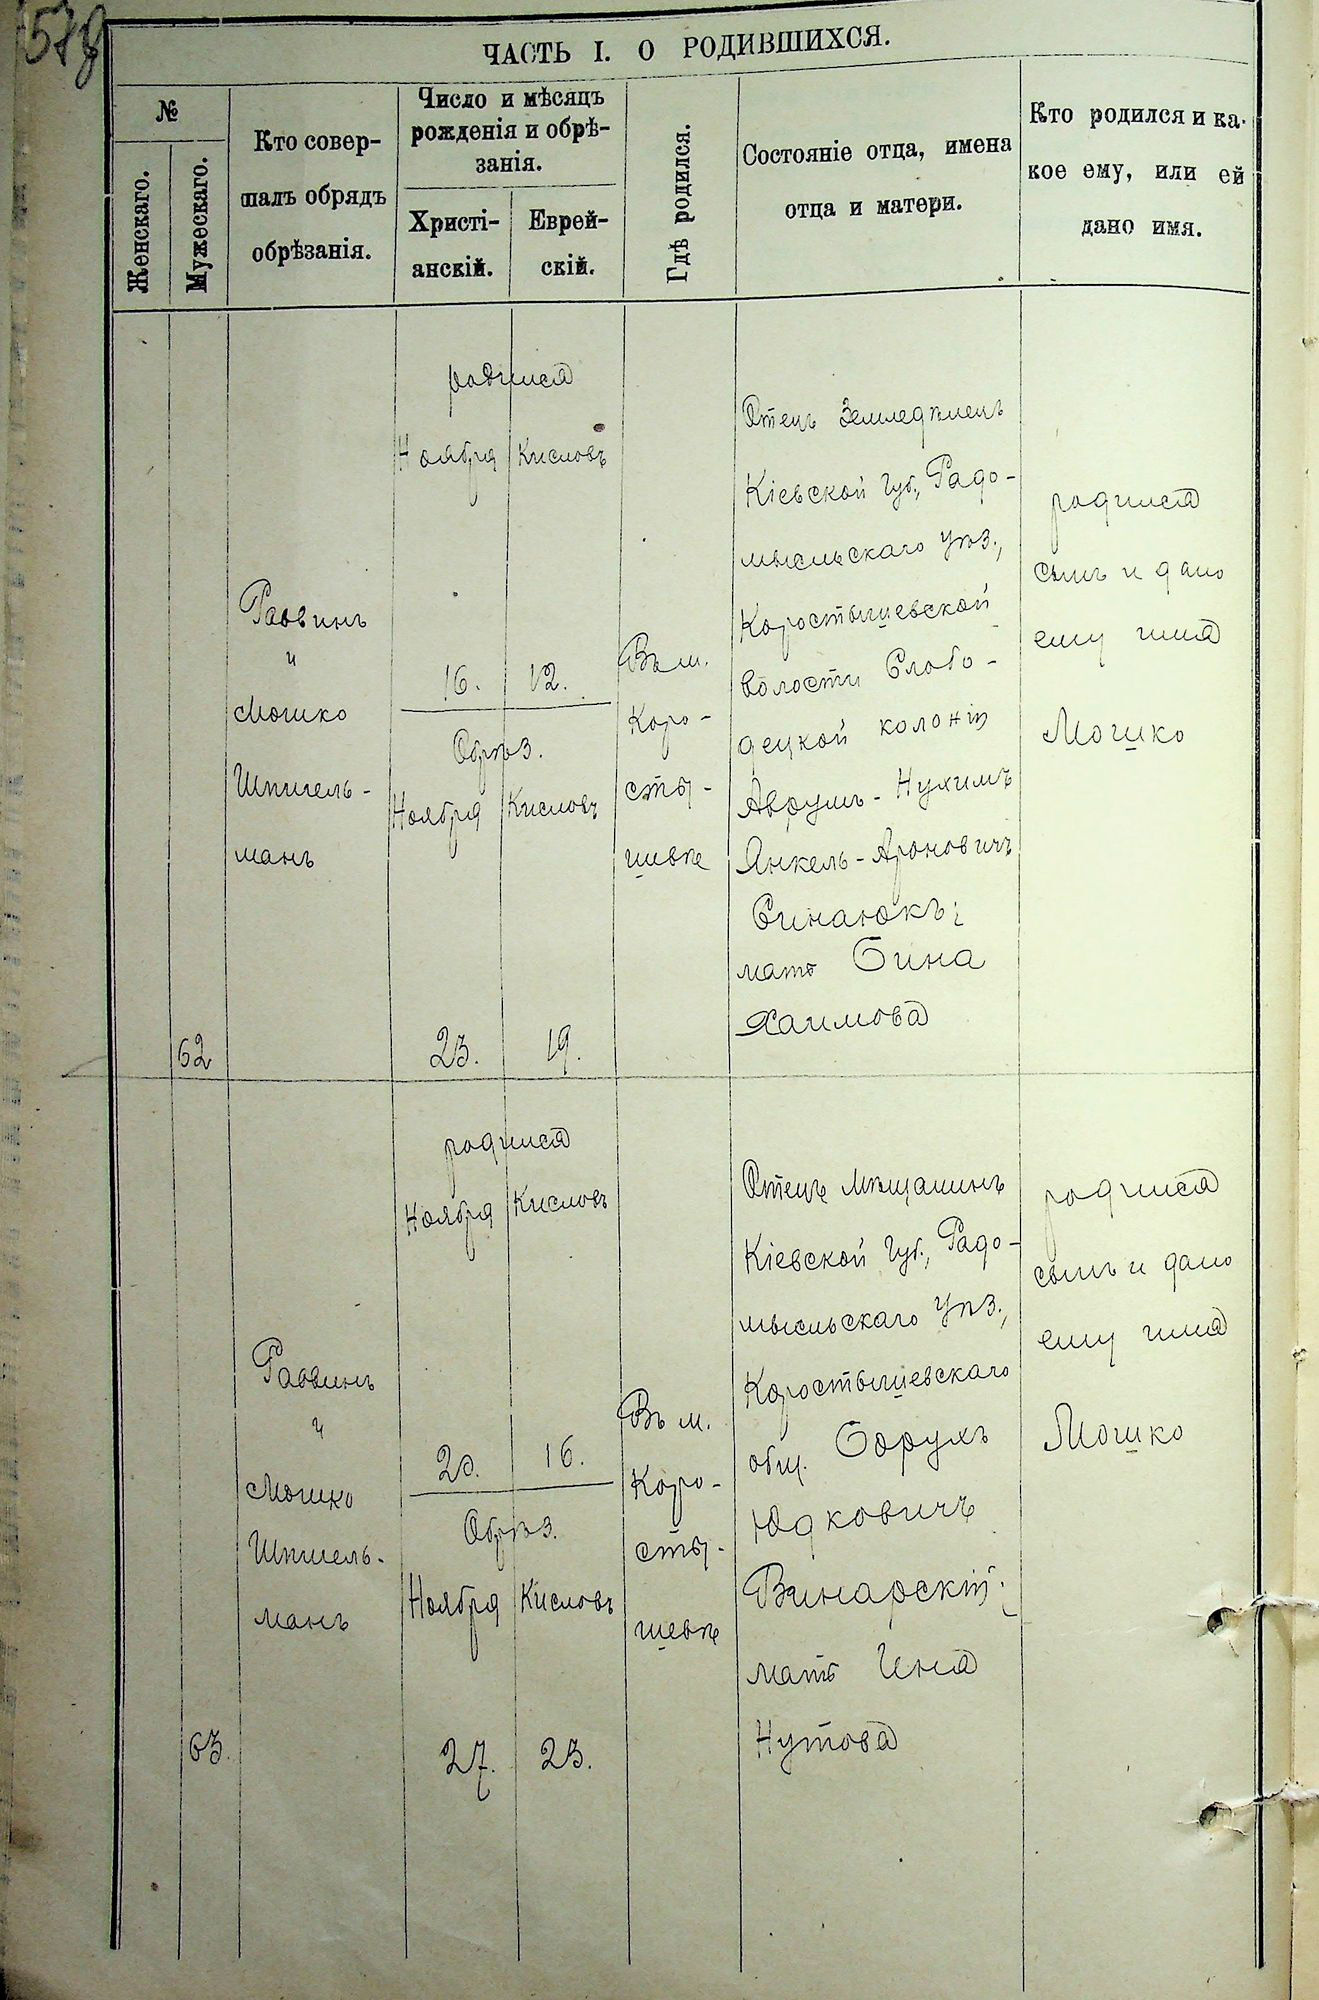 578
ЧАСТЬ I. О РОДИВШИХСЯ.
№
Женскаго.
Мужескаго.
Кто совер-
шалъ обрядъ
обрѣзанія.
Число и мѣсяцъ
рожденія и обрѣ-
занія.
Христі-
анскій.
Еврей-
скій.
Гдѣ родился.
Состояніе отца, имена
отца и матери.
Кто родился и ка-
кое ему, или ей
дано имя.
62
Раввинъ
и
Мошко
Шпигель-
манъ
родился
Ноября Кисловъ
16. 12.
Обрѣз.
Ноября Кисловъ
23. 19.
Въ м.
Коро-
сты-
шевѣ
Отецъ Земледѣлецъ
Кіевской Губ., Радо-
мысльскаго Уѣз.,
Коростышевской
волости Слобо-
децкой колоніи
Аврумъ-Нухимъ
Янкель-Ароновичъ
Синаюкъ;
мать Бина
Хаимова
родился
сынъ и дано
ему имя
Мошко
63.
Раввинъ
и
Мошко
Шпигель-
манъ
родился
Ноября Кисловъ
20. 16.
Обрѣз.
Ноября Кисловъ
27. 23.
Въ м.
Коро-
сты-
шевѣ
Отецъ Мѣщанинъ
Кіевской Губ., Радо-
мысльскаго Уѣз.,
Коростышевскаго
общ. Борухъ
Юдковичъ
Винарскій;
мать Иня
Нутова
родился
сынъ и дано
ему имя
Мошко